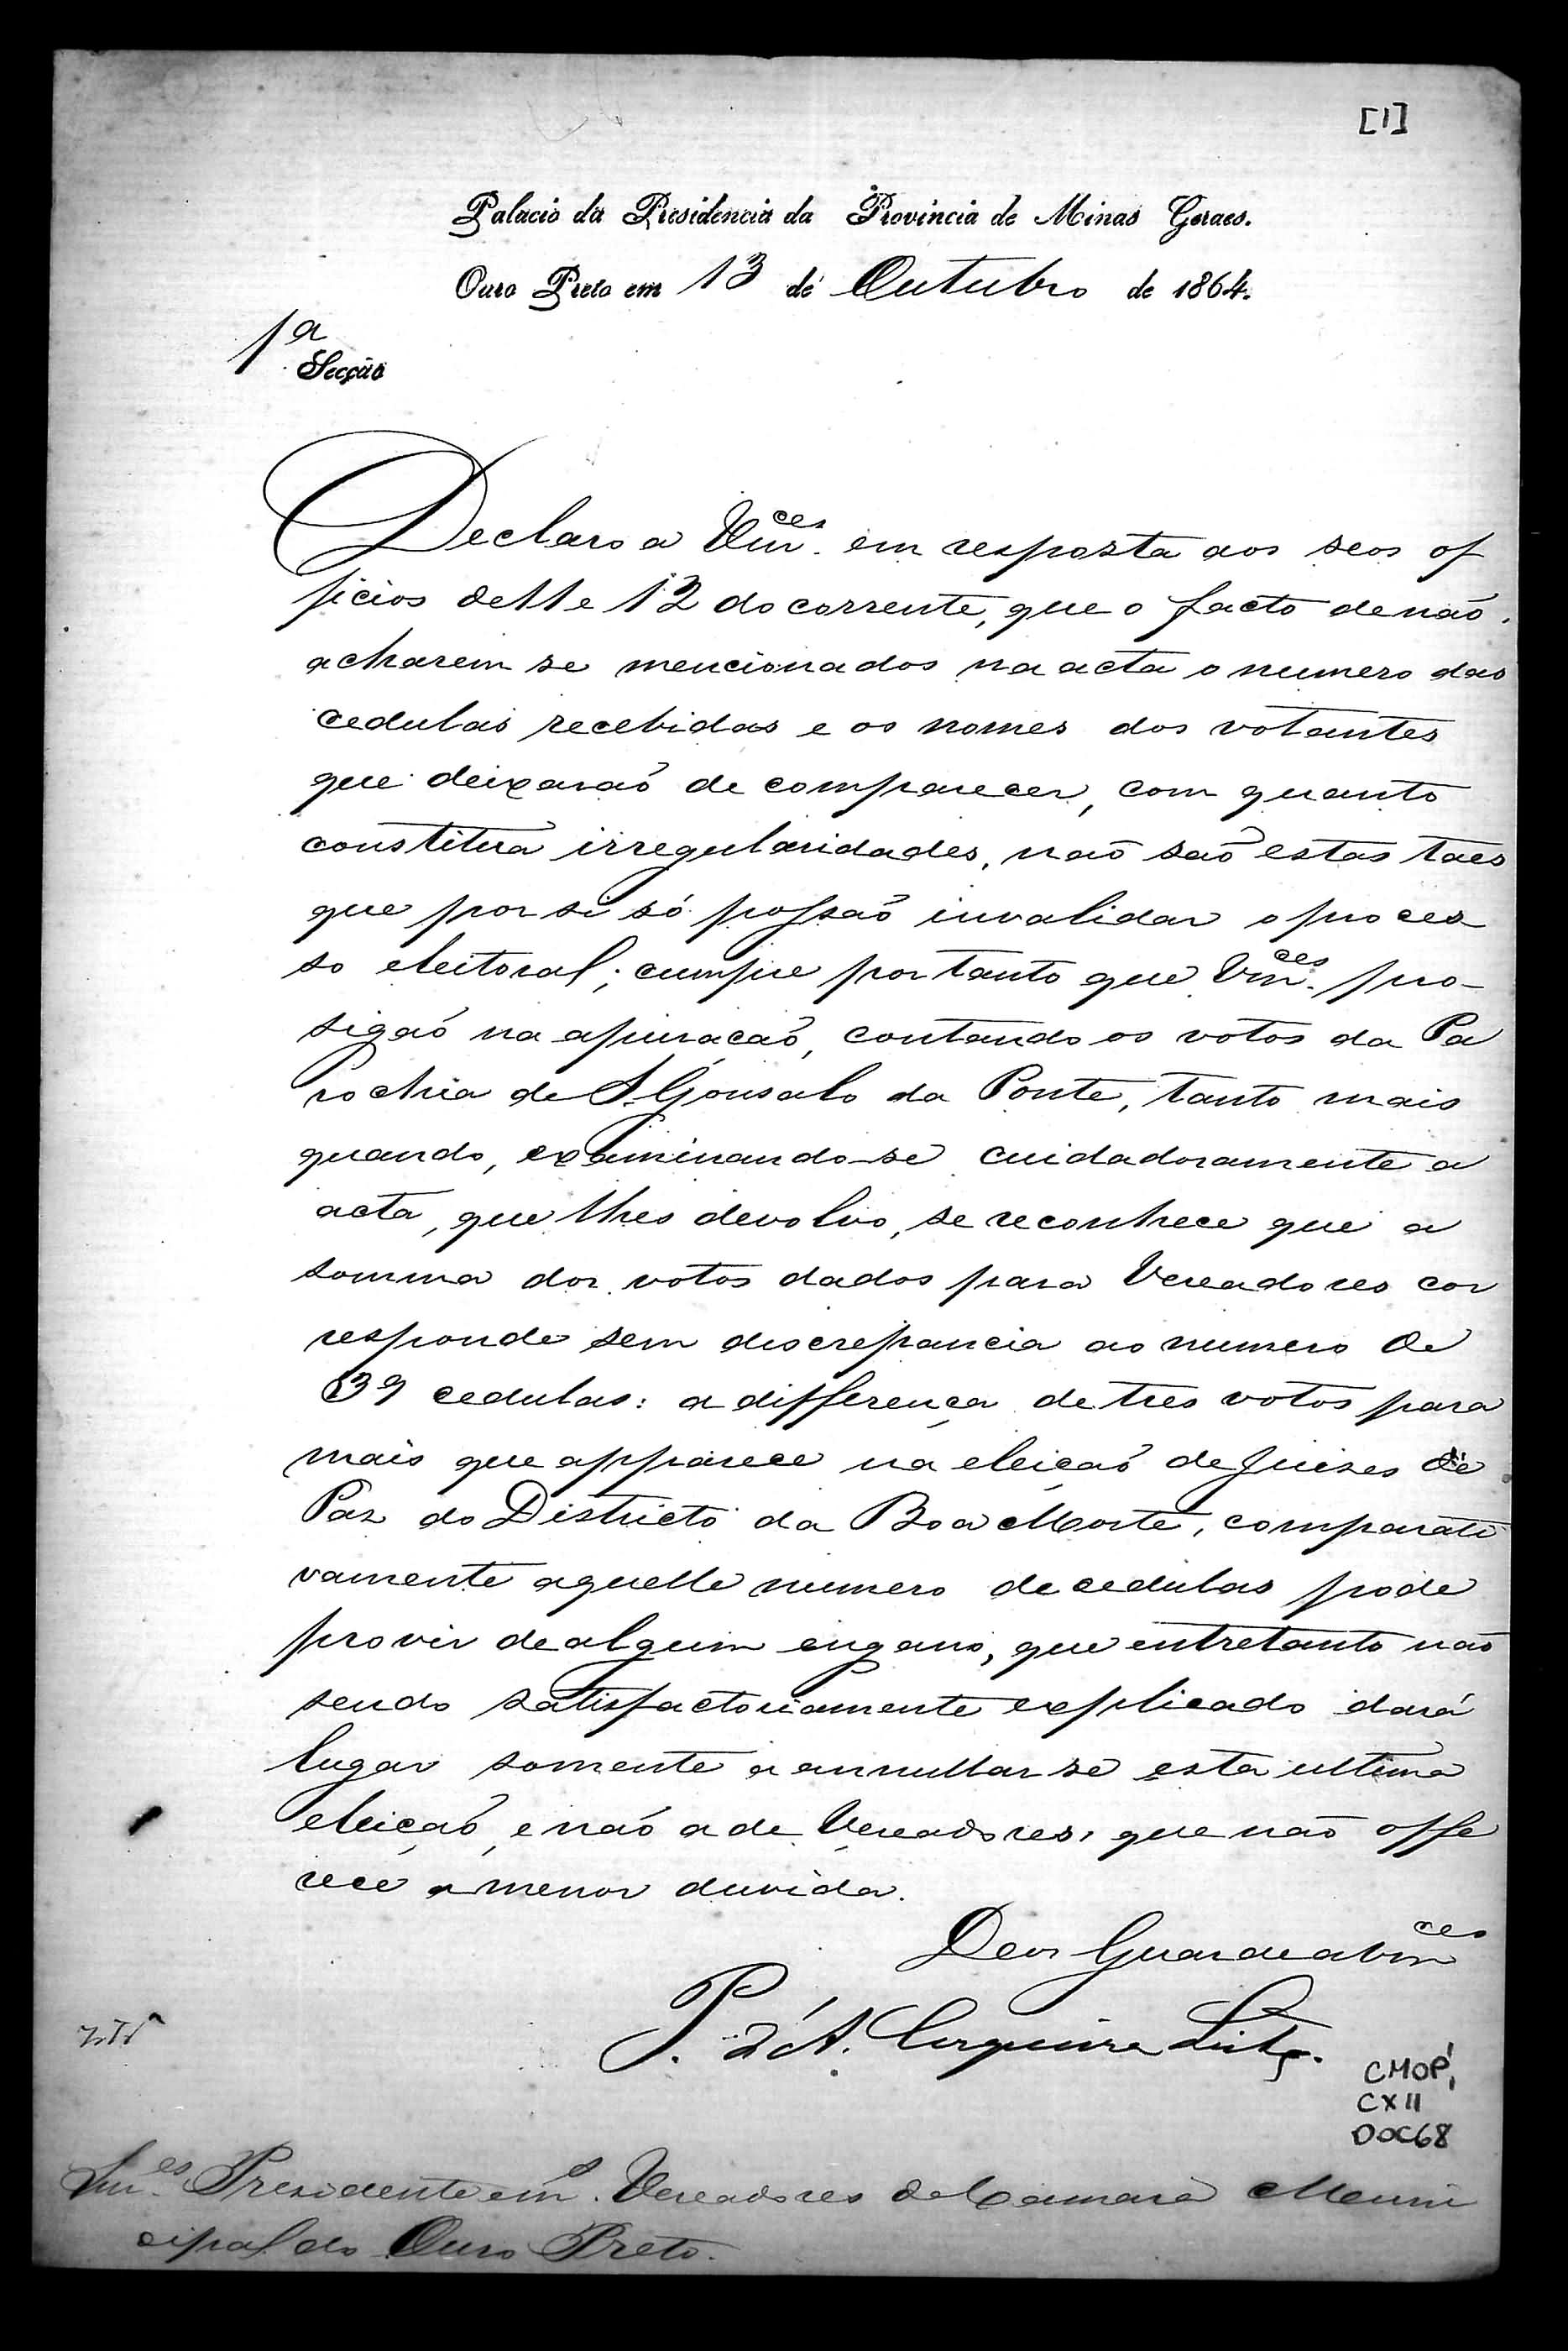 [1]
Palacio da Presidencia da Provincia de Minas Geraes.
Ouro Preto em 13 de Outubro de 1864.
1ª
Secção
Declaro a Vmces. em resposta aos seos of
ficios de 11 e 12 do corrente, que o facto de não
acharem se mencionados na acta o numero das
cedulas recebidas e os nomes dos votantes
que deixaraõ de comparecer, com quanto
constitua irregularidades, naõ saõ estas taes
que por si só possaõ invalidar o proces
so eleitoral; cumpre portanto que Vmces. pro-
sigaõ na apuraçaõ, contando os votos da Pa
rochia de S. Gonsalo da Ponte, tanto mais
quando, examinando-se cuidadosamente a
acta, que lhes devolvo, se reconhece que a
somma dos votos dados para Vereadores cor
responde sem discrepancia ao numero de
39 cedulas: a differença de tres votos para
mais que apparece na eleiçaõ de Juises de
Paz do Districto da Boa Morte, comparati
vamente aquelle numero de cedulas pode
provir de algum engano, que entretanto naõ
sendo satisfactoriamente explicado dará
lugar somente a annullar se esta ultima
eleiçaõ, e naõ a de Vereadores, que naõ offe
rece a menor duvida.
Deos Guarde a Vmces
P. d'A. Cerqueira Leite.
CMOP,
CX 11
DOC 68
Snres. Presidente e mais Vereadores da Camara Muni
cipal do Ouro Preto.